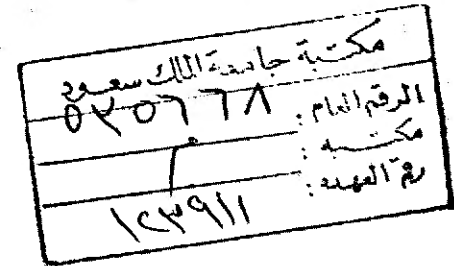 مكتبة جامعة الملك سعود
الرقم العام : ٥٣٥٦٦٨
مكتبه :
رقم العهده : ١٢٣٩١١